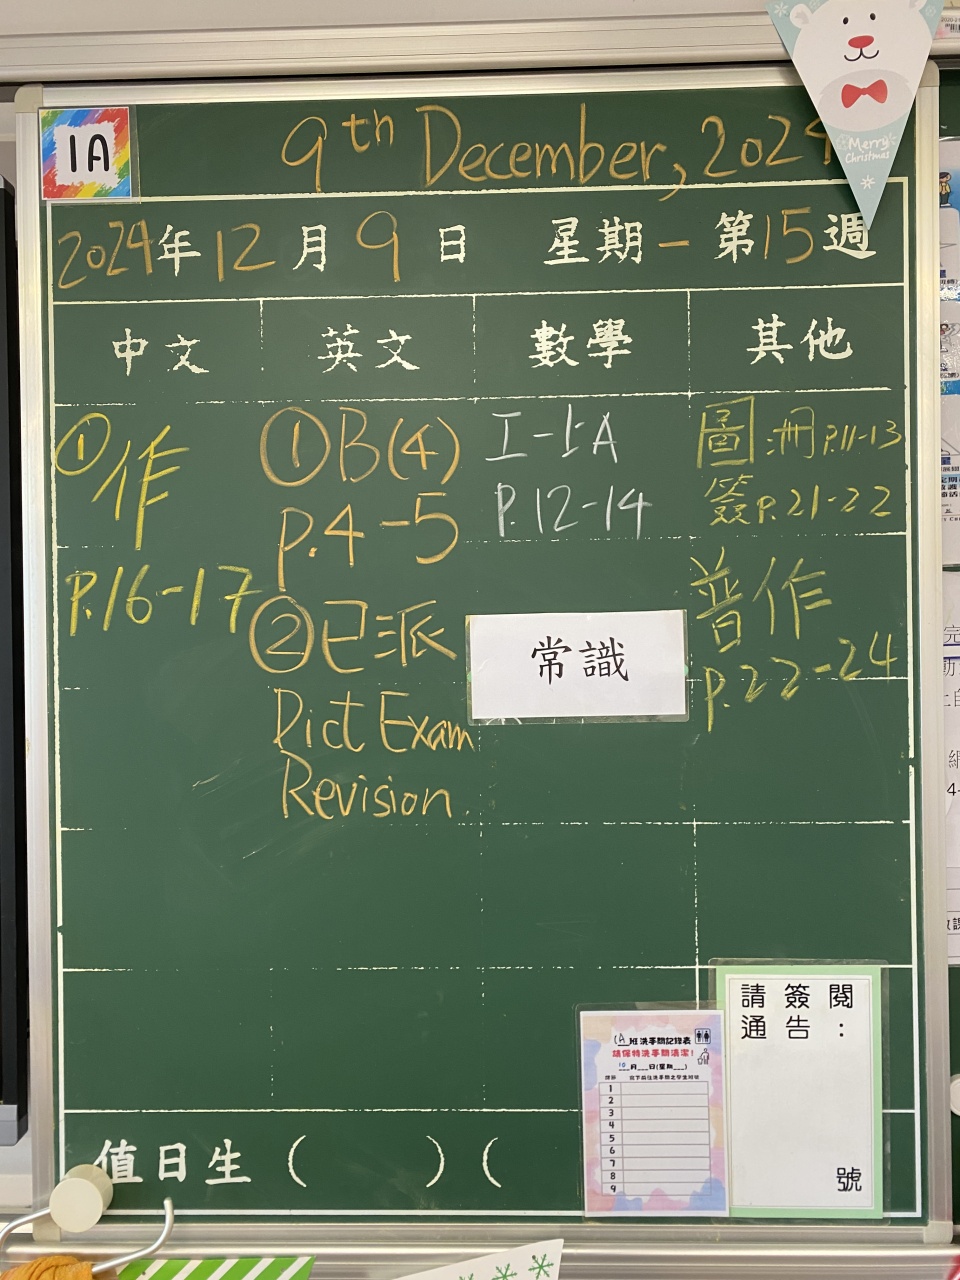 1A
9th December, 2024
Merry
Christmas
2024年12月9日 星期一 第15週
中文 英文 數學 其他
①作
P.16-17
①B(4)
p.4-5
②已派
Dict Exam
Revision.
工一上A
P.12-14
常識
圖冊P.11-13
簽P.21-22
普作
P.22-24
請簽閱
通告：
號
1A班洗手間記錄表
請保持洗手間清潔！
10月__日(星期__)
1
2
3
4
5
6
7
8
9
值日生（ ）（